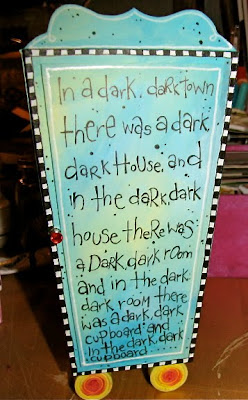 In a dark, dark town
there was a dark,
dark House, and
in the dark, dark
house there was
a Dark, dark room
and in the dark
dark room there
was a dark, dark
cupboard and
In the dark, dark
cupboard.....